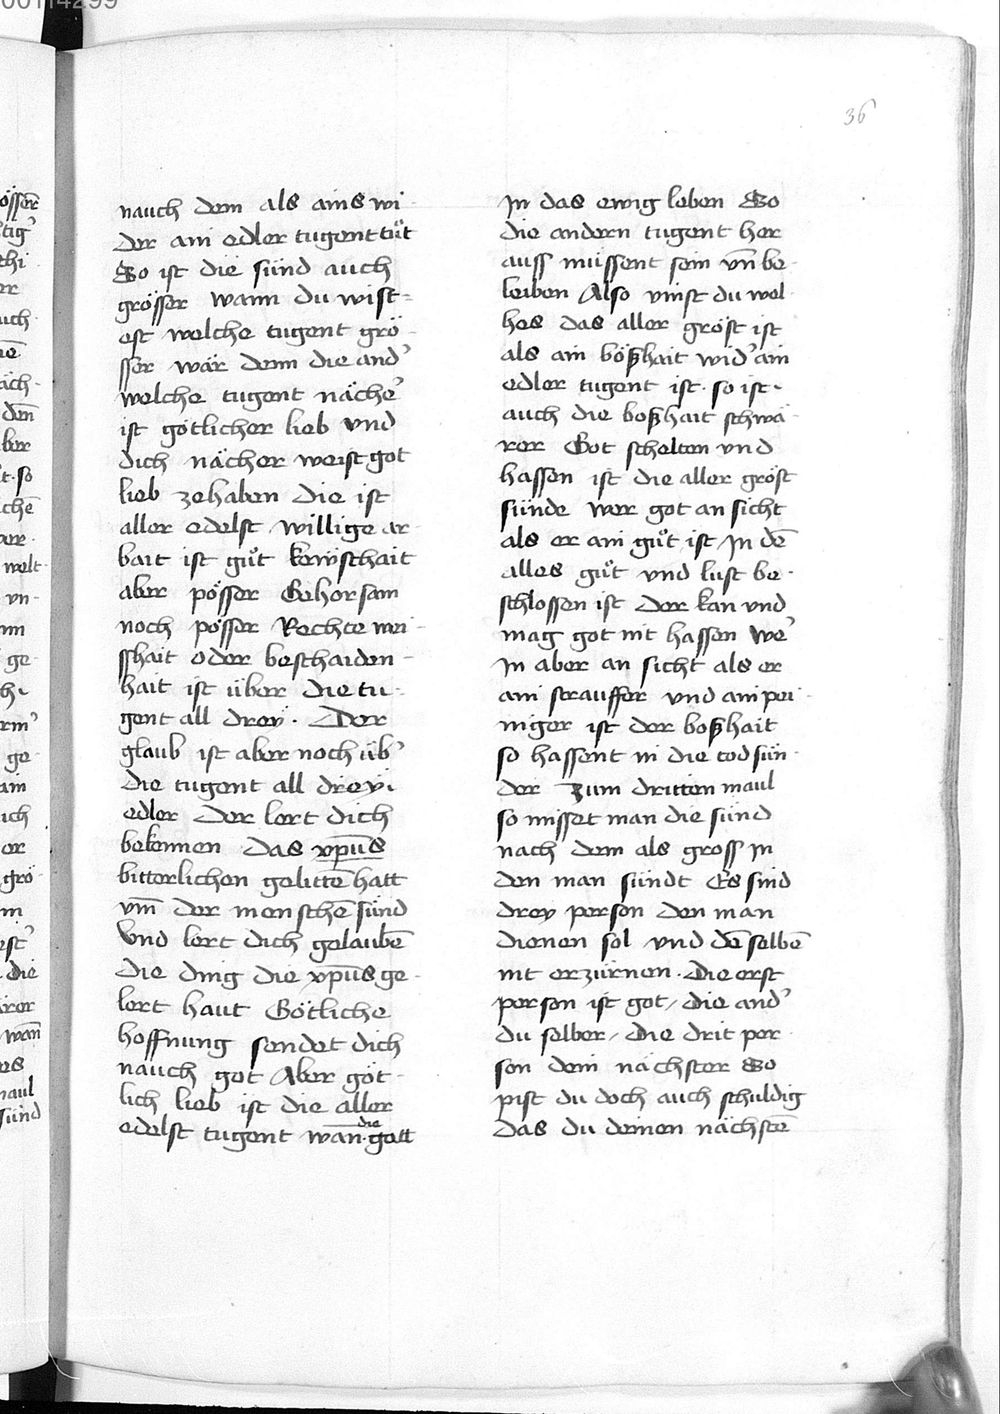 36
nauch dem als ains wi
der ain edler tugent tuͤt
So ist die sünd auch
grösser wann du wist=
est welche tugent grö
sser wär denn die and'
welche tugent näche'
ist götlicher lieb vnd
dich nächer weist got
lieb ze haben Die ist
aller edelst willige ar
bait ist guͤt kewschait
aber pösser Gehorsam
noch pösser Rechte wei
sshait oder beschaiden
hait ist über die tu=
gent all drey. Der
glaub ist aber noch üb'
die tugent all dreyi
edler Der lert dich
bekennen das xp̄us
bitterlichen gelittē hatt
vm̄ der menschē sünd
Vnd lert dich gelaubē
die ding die xp̄us ge-
lert haut Götliche
hoffnung sendet dich
nauch got Aber göt-
lich lieb ist die aller
edelst tugent wan̄ die gott
In das ewig leben So
die andern tugent her
auss müssent sein vn̄ be-
leiben Also vinst du wel
hes das aller gröst ist
als ain bößhait wid' ain
edler tugent ist. so ist
auch die boßhait schwä
rer Got schelten vnd
hassen ist die aller gröst
sünde wer got an sicht
als er ain guͤt ist In dē
alles guͤt vnd lust be-
schlossen ist Der kan vnd
mag got nit hassen we'
In aber an sicht als er
ain strauffer vnd ain pei-
niger ist der boßhait
so hassent in die tod sün-
der Zum dritten maul
so misset man die sünd
nach dem als gross in
den man sündt Es sind
drey person den man
dienen sol vnd dē selbē
nit erzürnen. Die erst
person ist got / die and'
du selber / Die drit per
son dein nächster So
pist du doch auch schuldig
das du deinen nächstē